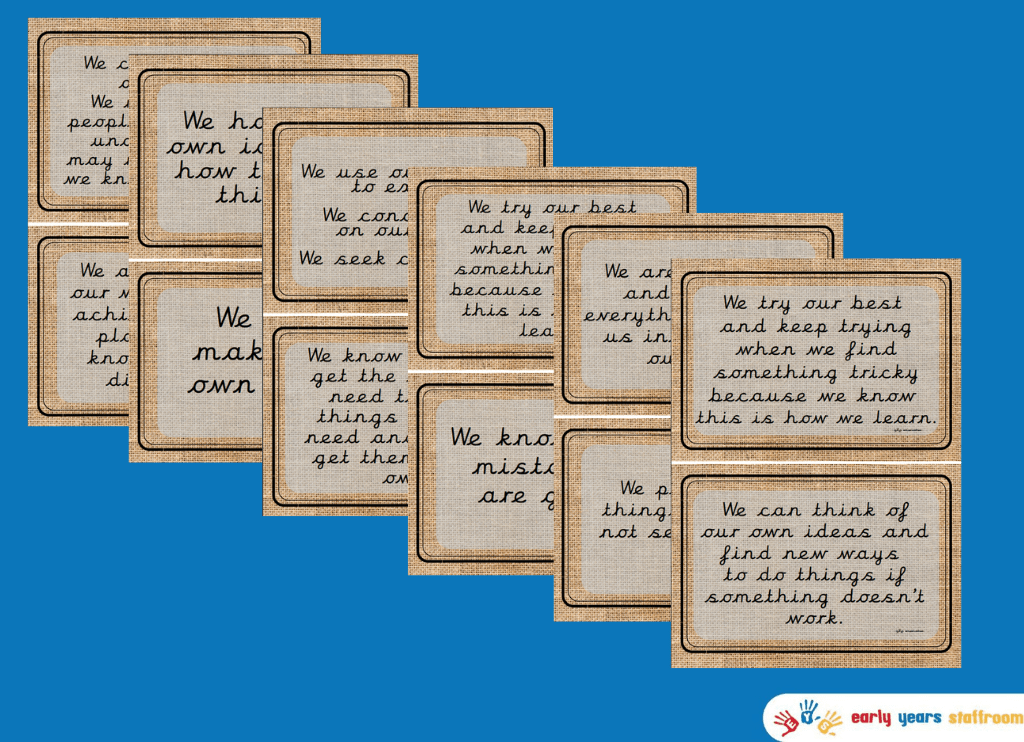 We
We
peopl
may
we kn
We a
our
achi
pla
kno
di
We ha
own i
how t
thi
We
mak
own
We use o
to e
We conc
on ou
We seek
We know
get the
need t
things
need and
get them
ow
We try our best
and keep
when w
somethin
because
this is
lea
We know
mista
are g
We are
and
everyth
us in
ou
We p
things
not se
We try our best
and keep trying
when we find
something tricky
because we know
this is how we learn.
We can think of
our own ideas and
find new ways
to do things if
something doesn't
work.
EYS
early years staffroom